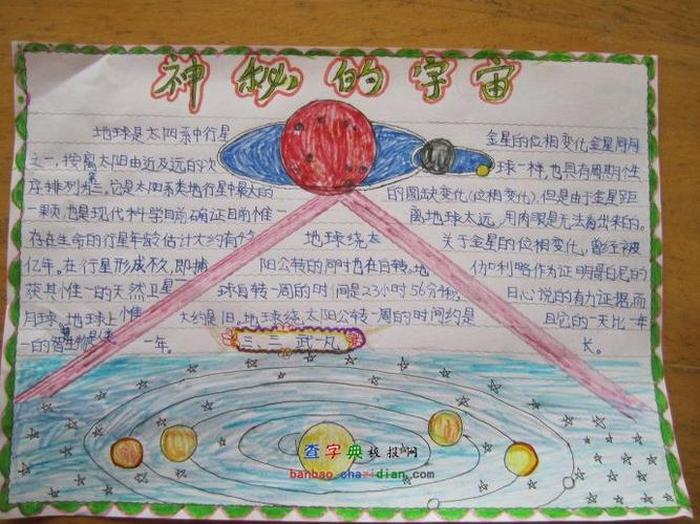 神秘的宇宙
地球是太阳系中行星
之一,按离太阳由近及远的次
序排列为第三,它是太阳系类地行星中最大的
一颗,也是现代科学目前确证目前惟一
存在生命的行星年龄估计大约有45
亿年。在行星形成不久,即捕
获其惟一的天然卫星
月球,地球上惟
一的智生物是人类
地球绕太
阳公转的同时也在自转。地
球自转一周的时间是23小时56分4秒,
大约是1日。地球绕太阳公转一周的时间约是
一年。
金星的位相变化金星同月
球一样,也具有周期性
的圆缺变化(位相变化),但是由于金星距
离地球太远,用肉眼是无法看出来的。
关于金星的位相变化,曾经被
伽利略作为证明哥白尼的
日心说的有力证据,而
且它的一天比一年
长。
三、三 武一丸
查字典板报网
banbao.chazidian.com